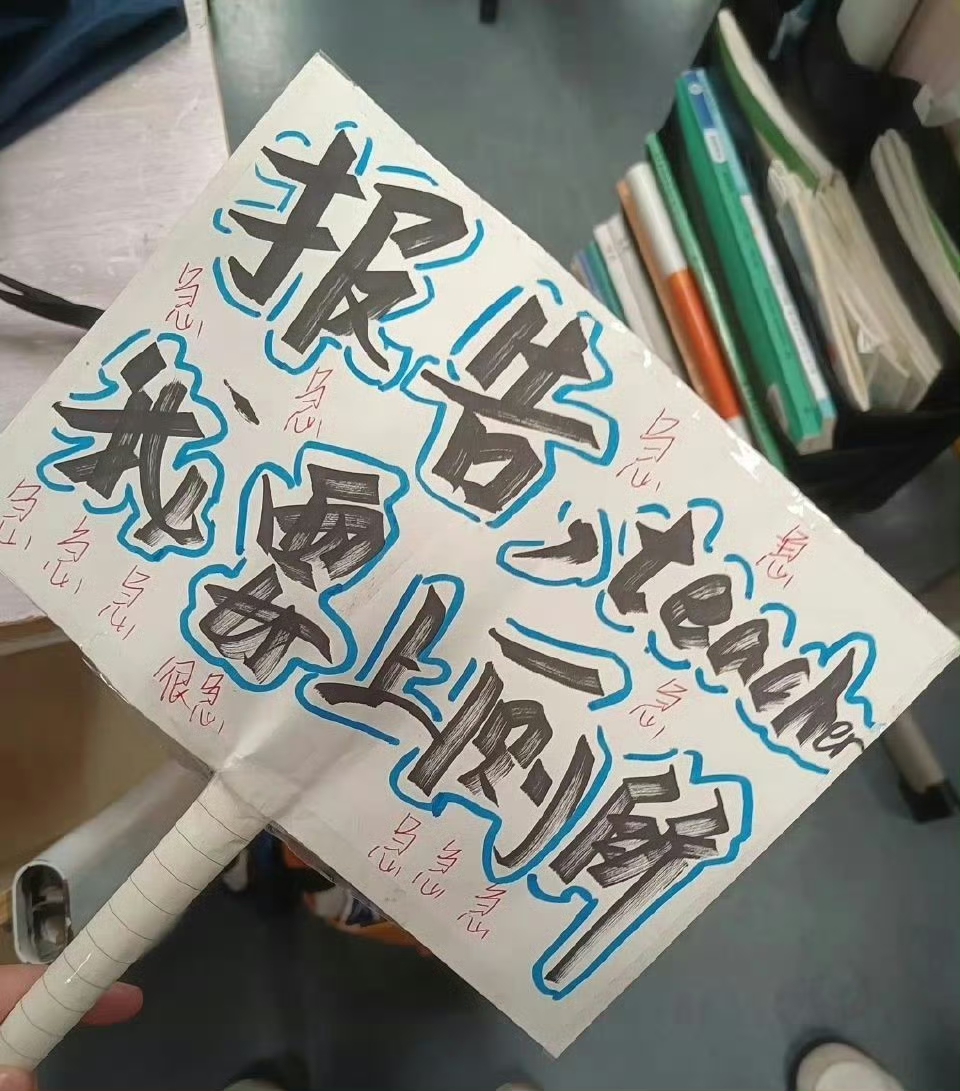 报告，teacher
我要上厕所
急
急
急
急
急
急
急
很急
急
急
急
急